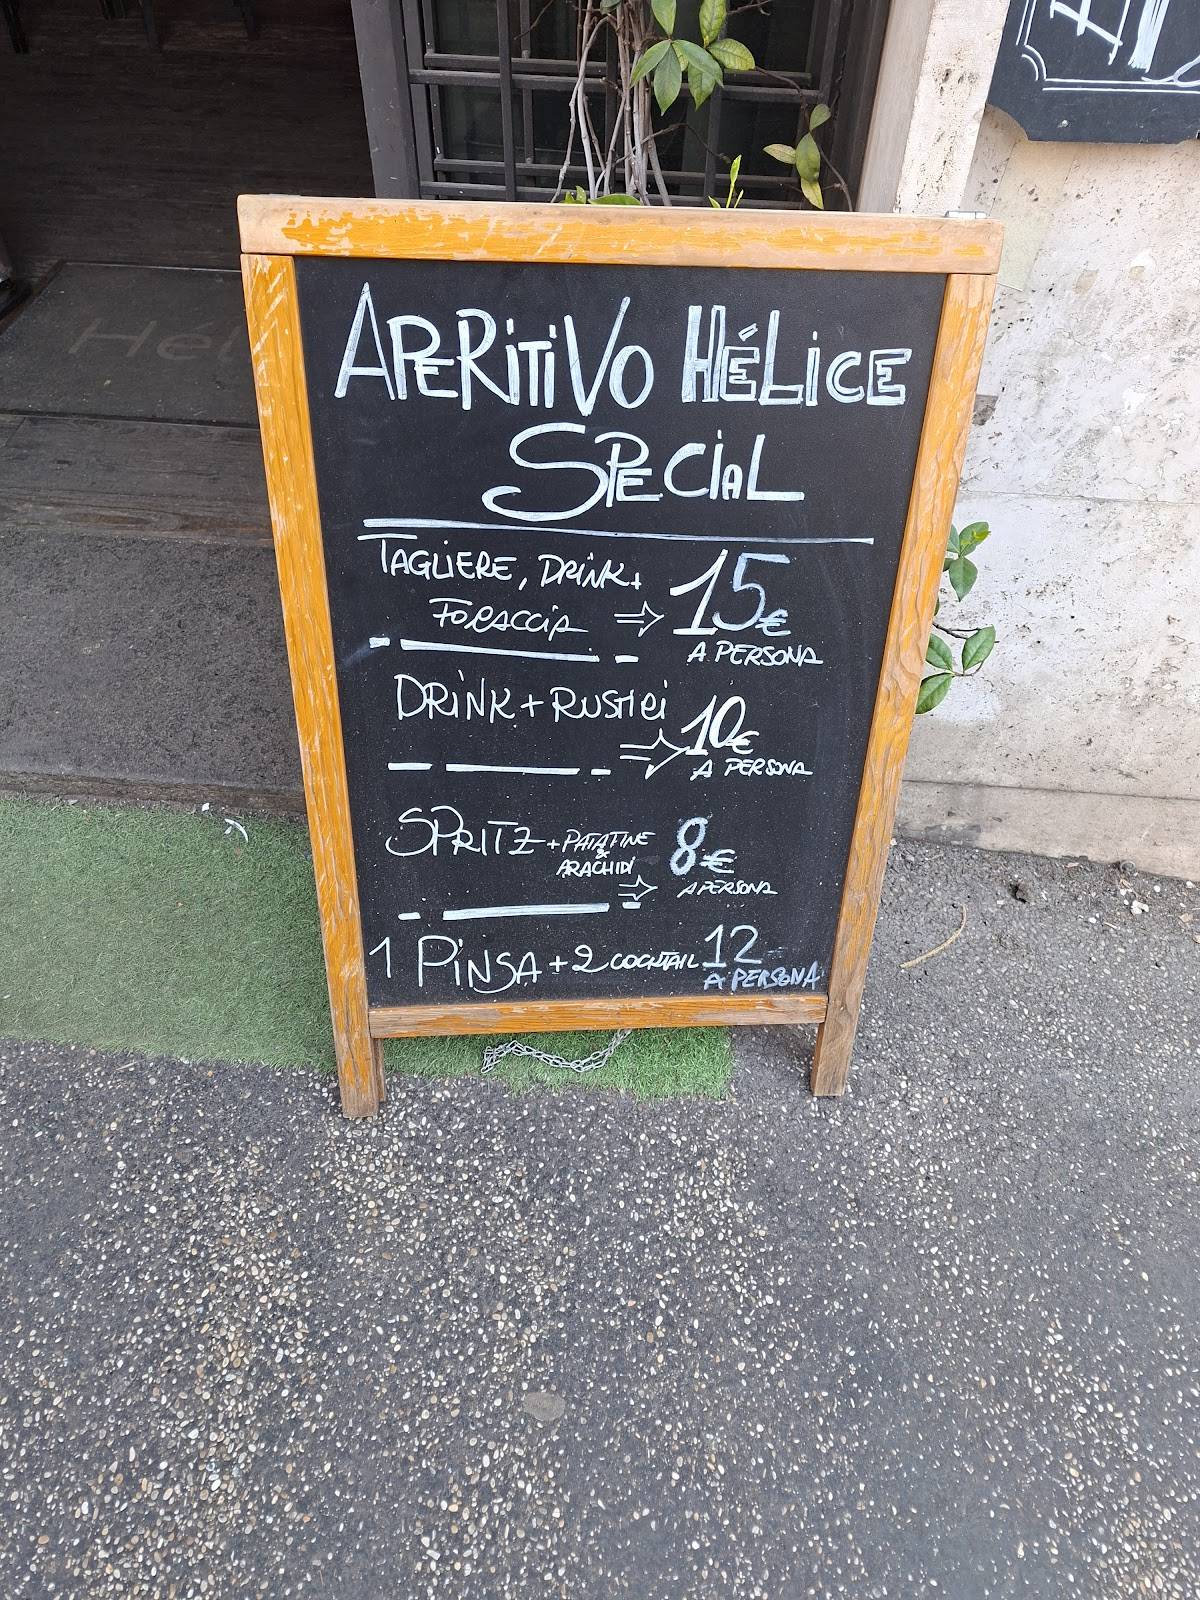 Hél
APERITIVO HÉLICE
SPECIAL
TAGLIERE, DRINK +
FOCACCIA ⇒ 15€
A PERSONA
DRINK + RUSTICI
⇒ 10€
A PERSONA
SPRITZ + PATATINE
& ARACHIDI ⇒ 8€
A PERSONA
1 PINSA + 2 COCKTAIL 12
A PERSONA